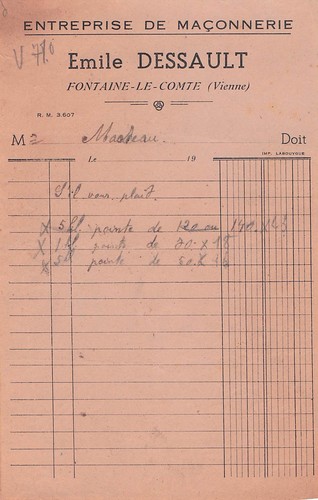 ENTREPRISE DE MAÇONNERIE
V 710
Emile DESSAULT
FONTAINE-LE-COMTE (Vienne)
R. M. 3.607
M Doit
Le 19
IMP. LABOUYGUE
S'il vous plait.
X 5 pointe de 120 ou 140 X
X pointe de 70 X 18
X 5 pointe de 50 X